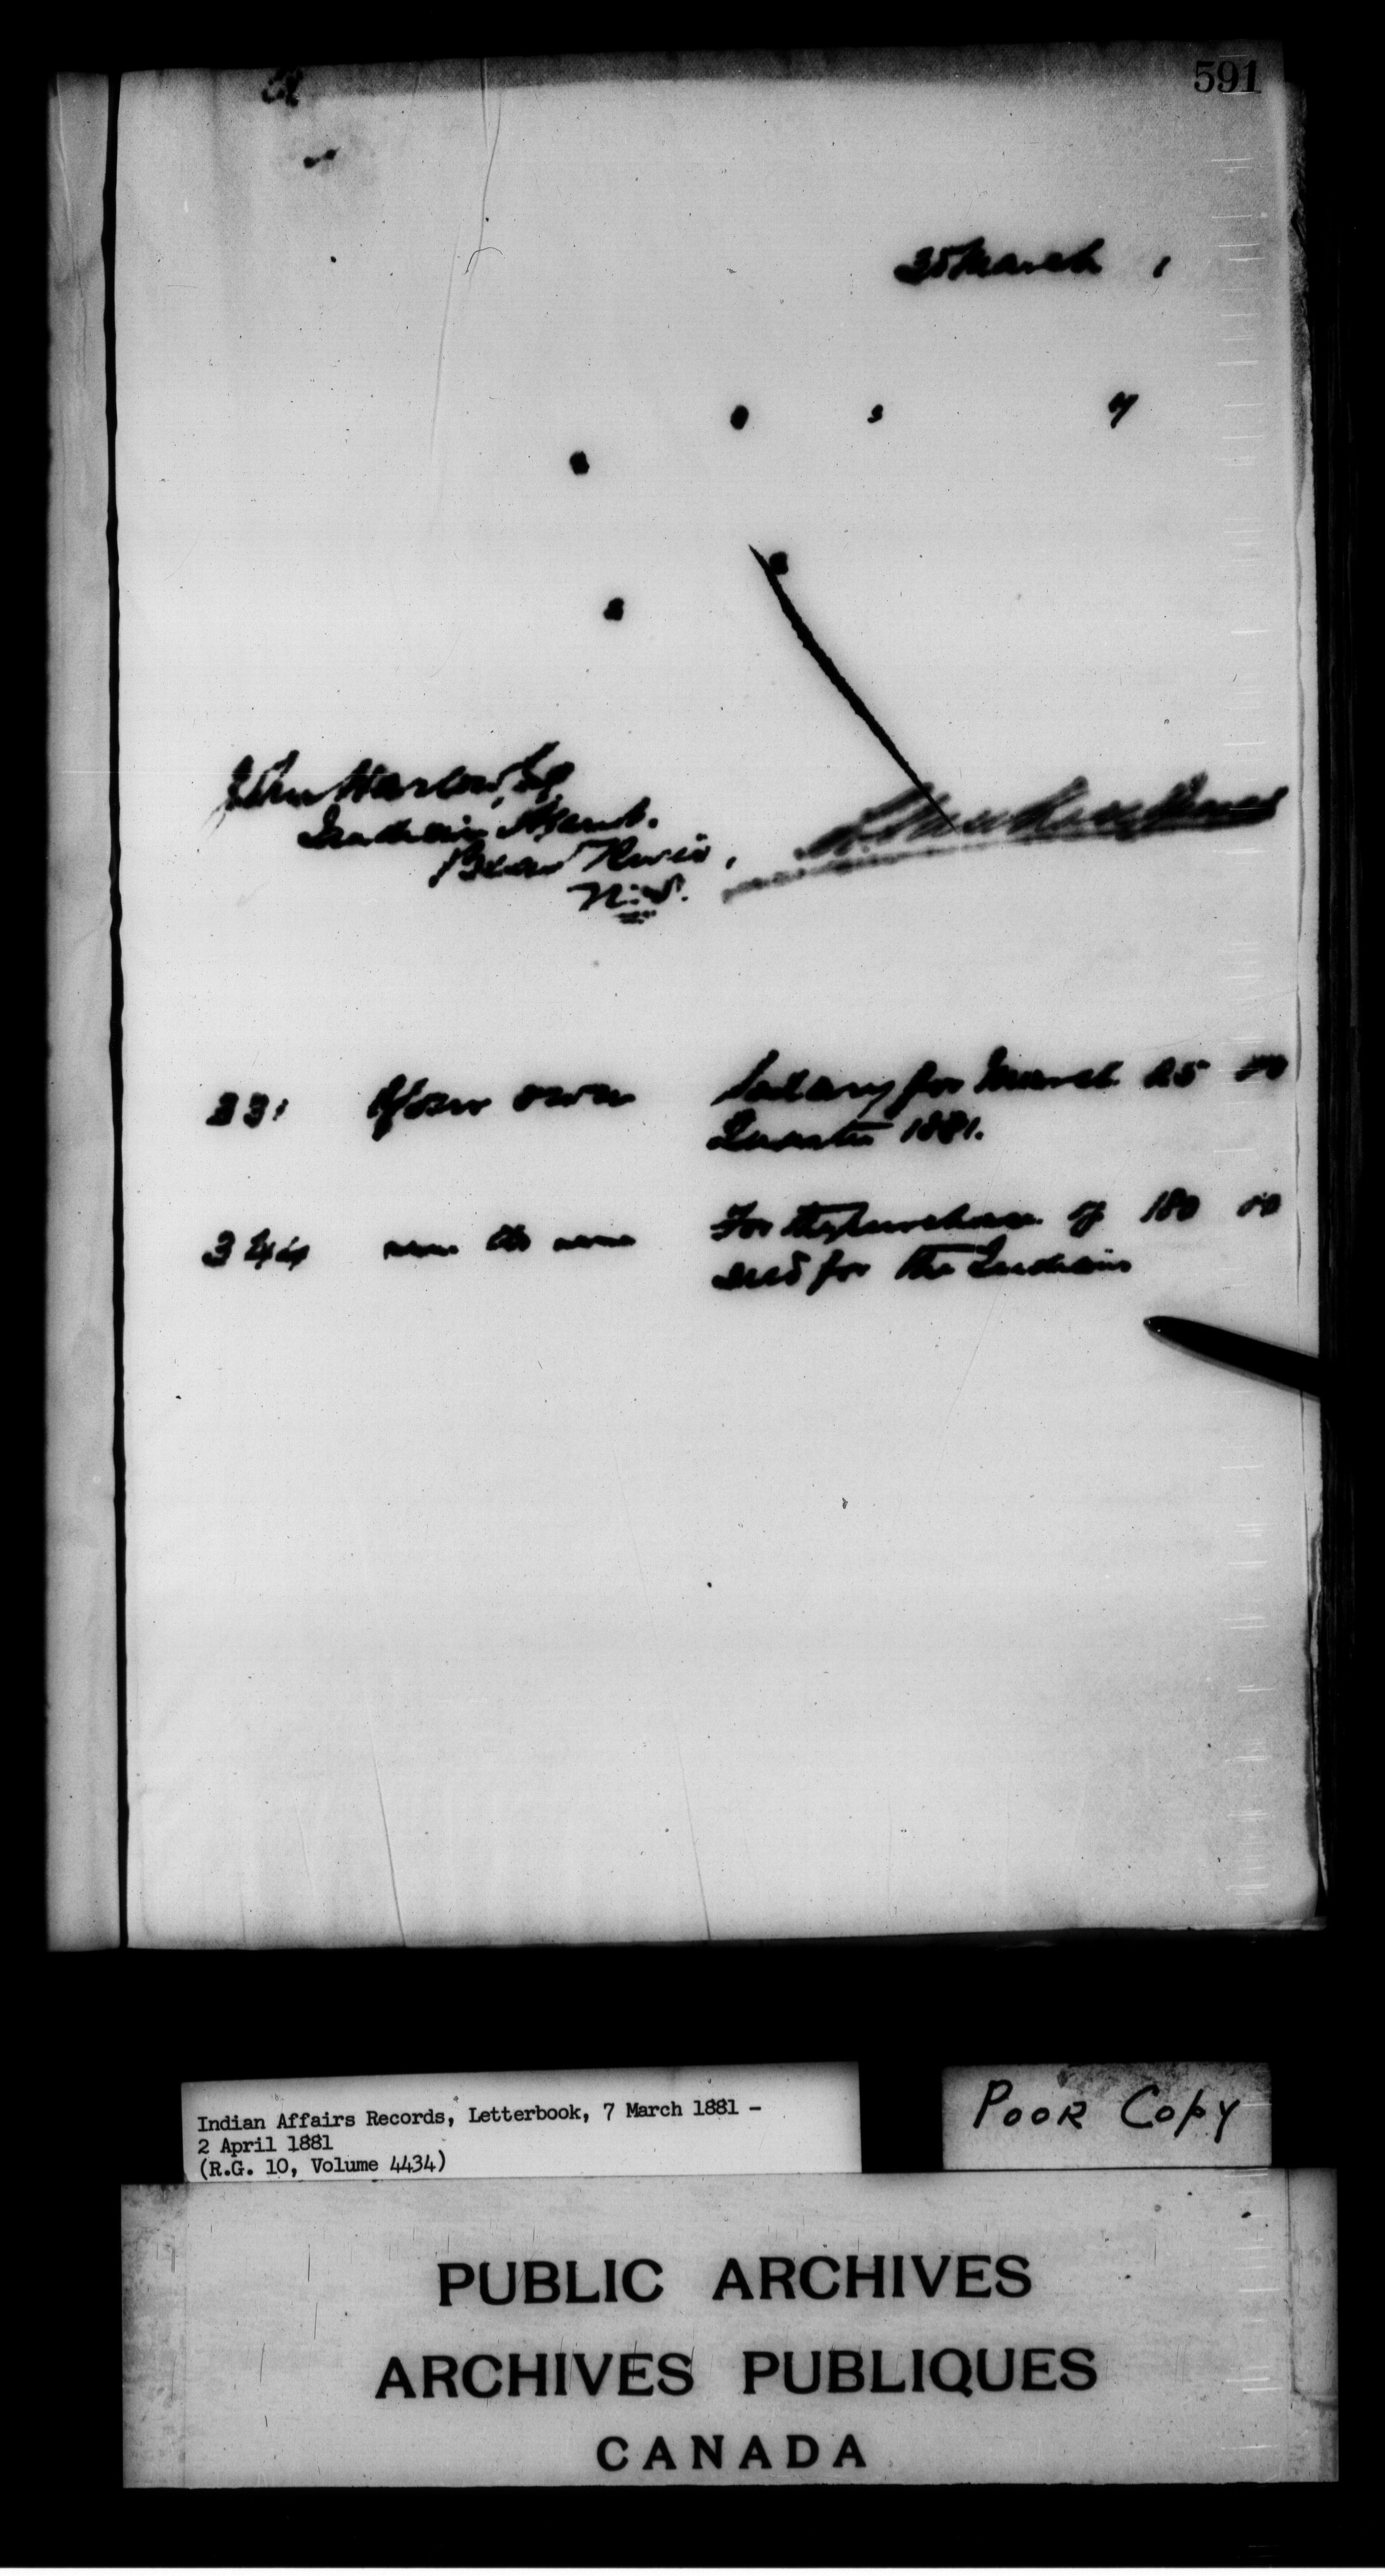 591
25 March 1
0 s y
John Harlow, Esq.
Indian Agent.
Bear River,
N.S.
331 Your own Salary for March 25 00
Quarter 1881.
344 do For the purchase of 180 00
seed for the Indians
Indian Affairs Records, Letterbook, 7 March 1881 -
2 April 1881
(R.G. 10, Volume 4434)
POOR COPY
PUBLIC ARCHIVES
ARCHIVES PUBLIQUES
CANADA